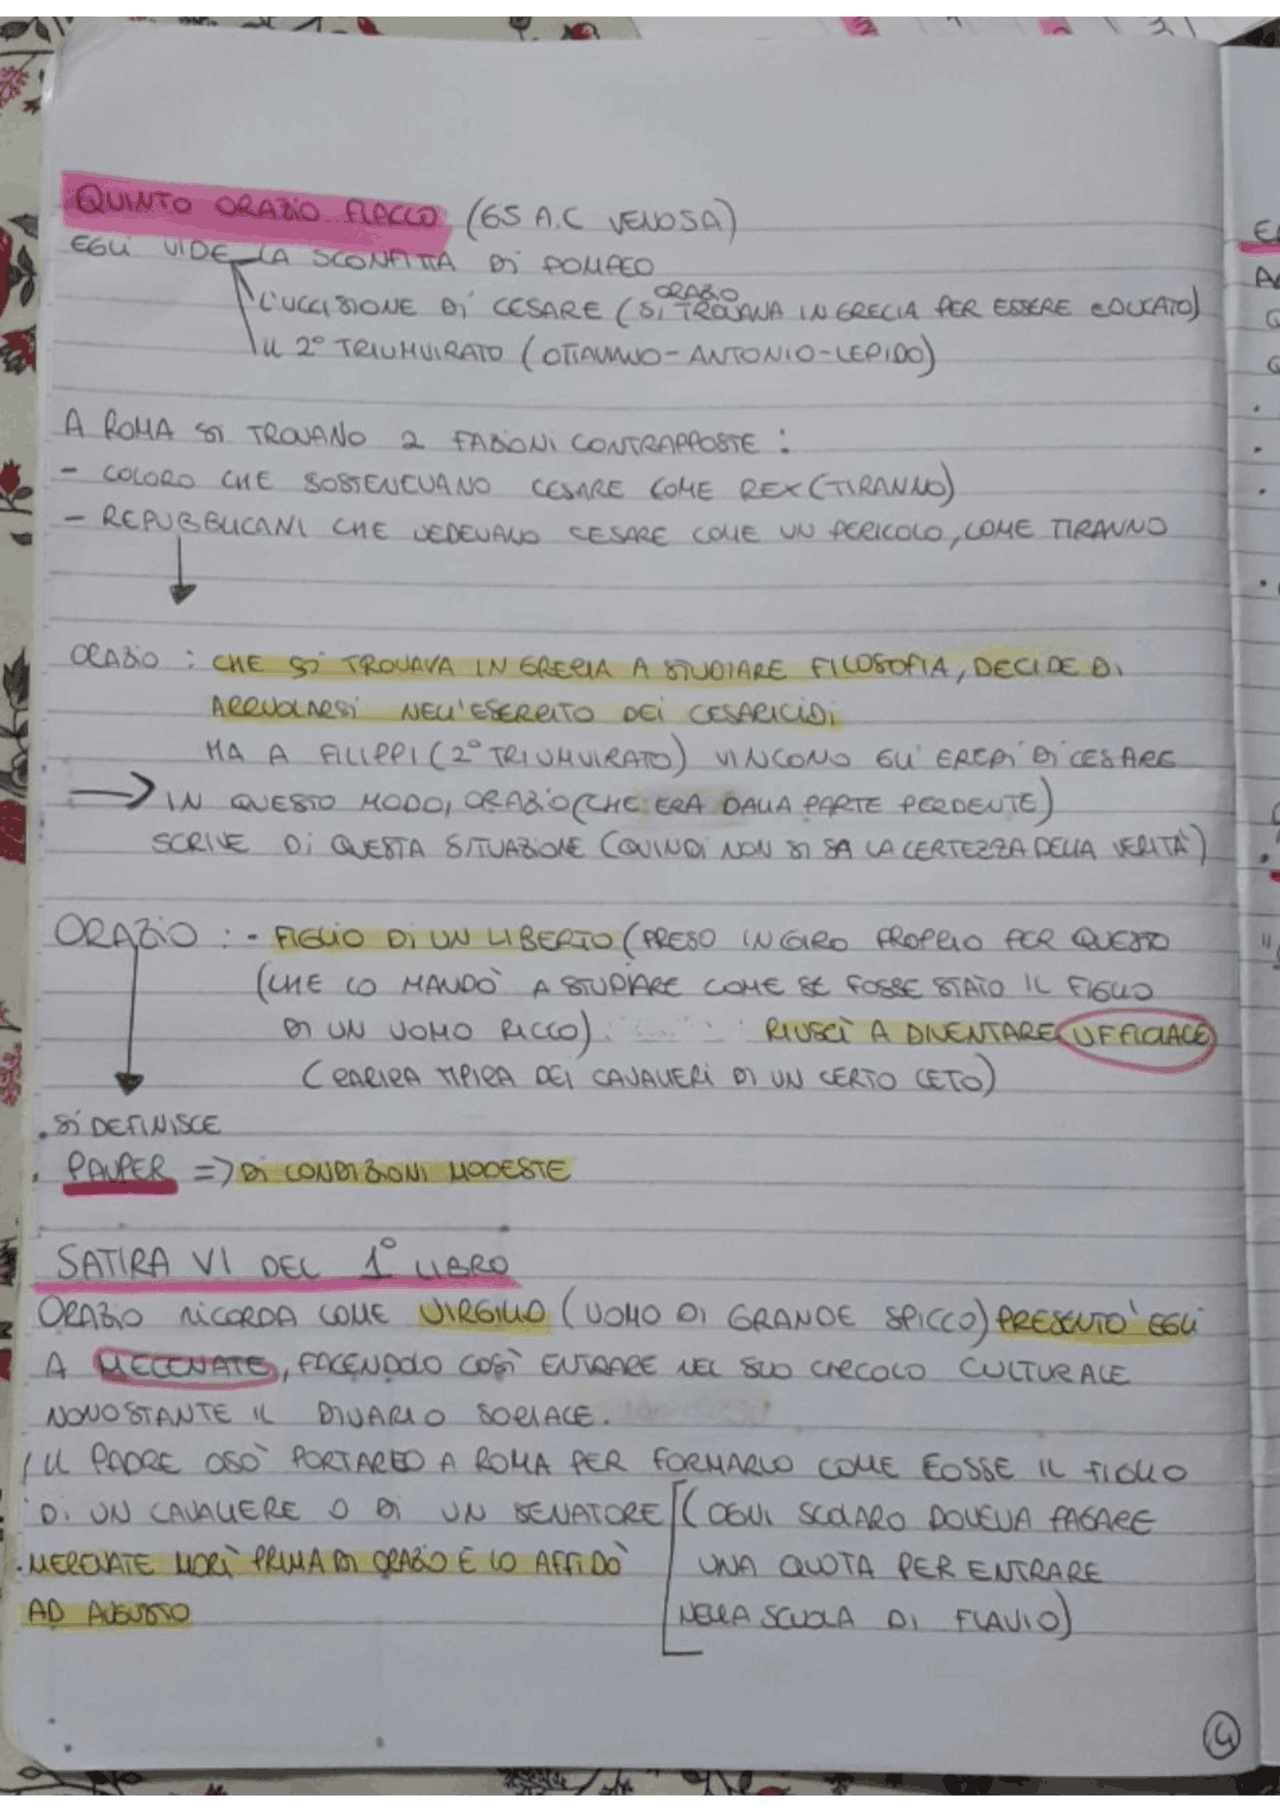 QUINTO ORAZIO FLACCO (65 A.C VENOSA)
EGLI VIDE LA SCONFITTA DI POMPEO
L'UCCISIONE DI CESARE (SI ORAZIO TROVAVA IN GRECIA PER ESSERE EDUCATO)
IL 2° TRIUMVIRATO (OTTAVIANO-ANTONIO-LEPIDO)
A ROMA SI TROVANO 2 FAZIONI CONTRAPPOSTE:
- COLORO CHE SOSTENEVANO CESARE COME REX (TIRANNO)
- REPUBBLICANI CHE VEDEVANO CESARE COME UN PERICOLO, COME TIRANNO
ORAZIO: CHE SI TROVAVA IN GRECIA A STUDIARE FILOSOFIA, DECIDE DI
ARRUOLARSI NELL'ESERCITO DEI CESARICIDI
MA A FILIPPI (2° TRIUMVIRATO) VINCONO GLI EREDI DI CESARE
→ IN QUESTO MODO, ORAZIO (CHE ERA DALLA PARTE PERDENTE)
SCRIVE DI QUESTA SITUAZIONE (QUINDI NON SI SA LA CERTEZZA DELLA VERITÀ)
ORAZIO: - FIGLIO DI UN LIBERTO (PRESO IN GIRO PROPRIO PER QUESTO
(CHE LO MANDÒ A STUDIARE COME SE FOSSE STATO IL FIGLIO
DI UN UOMO RICCO). RIUSCÌ A DIVENTARE UFFICIALE
(CARICA TIPICA DEI CAVALIERI DI UN CERTO CETO)
. SI DEFINISCE
. PAUPER => DI CONDIZIONI MODESTE
SATIRA VI DEL 1° LIBRO
ORAZIO RICORDA COME VIRGILIO (UOMO DI GRANDE SPICCO) PRESENTÒ EGLI
A MECENATE, FACENDOLO COSÌ ENTRARE NEL SUO CIRCOLO CULTURALE
NONOSTANTE IL DIVARIO SOCIALE.
IL PADRE OSÒ PORTARLO A ROMA PER FORMARLO COME FOSSE IL FIGLIO
DI UN CAVALIERE O DI UN SENATORE [(OGNI SCOLARO DOVEVA PAGARE
UNA QUOTA PER ENTRARE
NELLA SCUOLA DI FLAVIO)
. MECENATE MORÌ PRIMA DI ORAZIO E LO AFFIDÒ
AD AUGUSTO
4